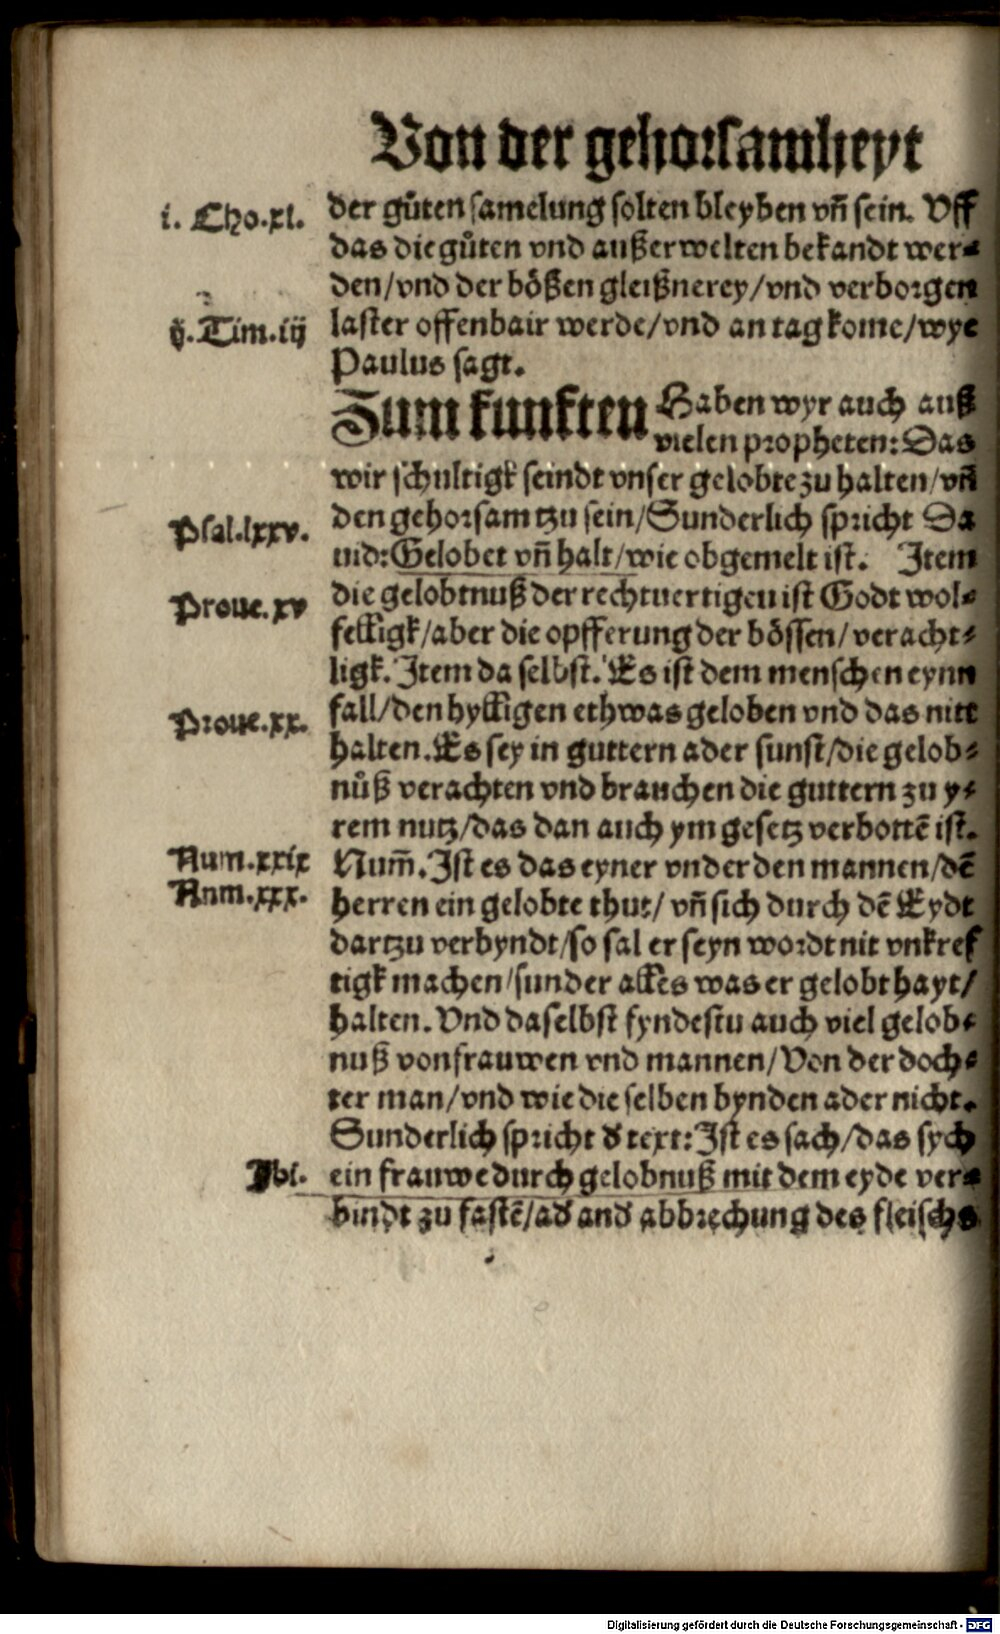 Von der gehorsamheyt
i. Cho.xi.
der gůten samelung solten bleyben vñ sein. Vff
das die gůten vnd außerwelten bekandt wer⸗
den/vnd der bößen gleißnerey/vnd verborgen
ij. Tim.iij
laster offenbair werde/vnd an tag kome/wye
Paulus sagt.
Zum funften Haben wyr auch auß
vielen propheten: Das
wir schultigk seindt vnser gelobte zu halten/vñ
Psal.lxxv.
den gehorsam tzu sein/Sunderlich spricht Da
uid: Gelobet vñ halt/wie obgemelt ist. Item
Proue.xv
die gelobtnuß der rechtuertigen ist Godt wol⸗
felligk/aber die opfferung der bössen/veracht⸗
ligk. Item da selbst. Es ist dem menschen eynn
Proue.xx.
fall/den hylligen ethwas geloben vnd das nitt
halten. Es sey in guttern ader sunst/die gelob⸗
nůß verachten vnd brauchen die guttern zu y⸗
rem nutz/das dan auch ym gesetz verbottē ist.
Num.xxix
Num̄. Ist es das eyner vnder den mannen/dē
Num.xxx.
herren ein gelobte thut/ vñ sich durch dē Eydt
dartzu verbyndt/so sal er seyn wordt nit vnkref
tigk machen/sunder alles was er gelobt hayt/
halten. Vnd daselbst fyndestu auch viel gelob⸗
nuß von frauwen vnd mannen/Von der doch⸗
ter man/vnd wie die selben bynden ader nicht.
Sunderlich spricht đ text: Ist es sach/das sych
Ibi.
ein frauwe durch gelobnuß mit dem eyde ver⸗
bindt zu fastē/ađ anđ abbrechung des fleischs
Digitalisierung gefördert durch die Deutsche Forschungsgemeinschaft - DFG